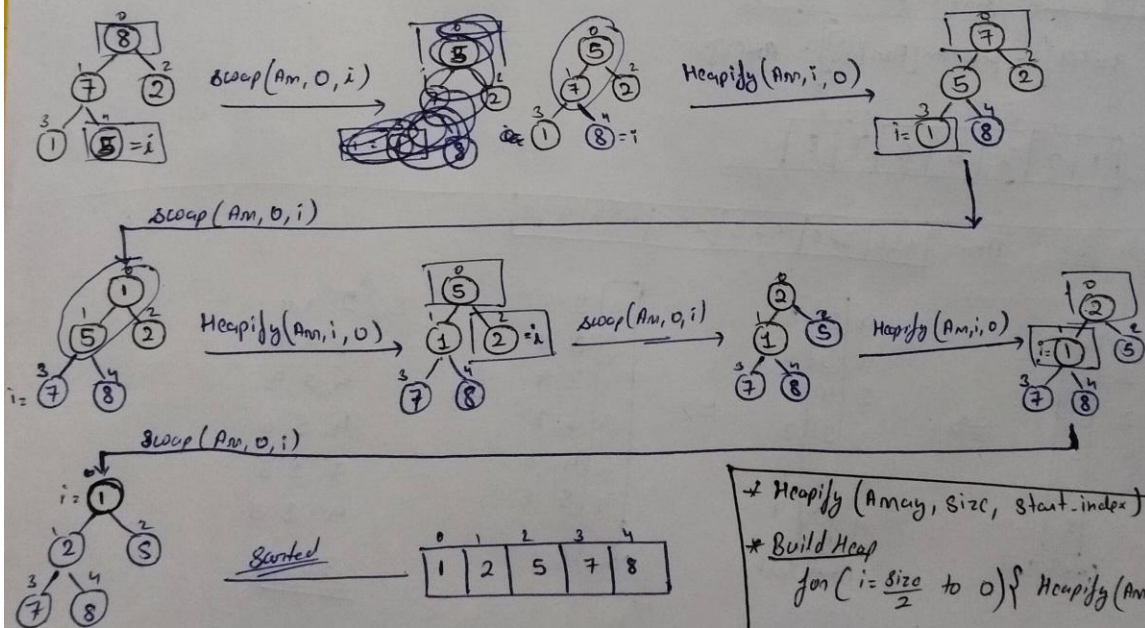 0
8
1 2
7 2
3 4
1 5 = i
Swap(Arr, 0, i)
0
5
2
2
8
0
5
1 2
7 2
3 4
1 8 = i
Heapify(Arr, i, 0)
0
7
1 2
5 2
3 4
i = 1 8
Swap(Arr, 0, i)
0
1
1 2
5 2
3 4
i = 7 8
Heapify(Arr, i, 0)
0
5
1 2
1 2 = i
3 4
7 8
Swap(Arr, 0, i)
0
2
1 2
1 5
3 4
7 8
Heapify(Arr, i, 0)
0
2
1 2
i = 1 5
3 4
7 8
Swap(Arr, 0, i)
0
i = 1
1 2
2 5
3 4
7 8
Sorted
0 1 2 3 4
1 2 5 7 8
* Heapify (Array, size, start-index)
* Build Heap
for ( i = size/2 to 0) { Heapify(Ar